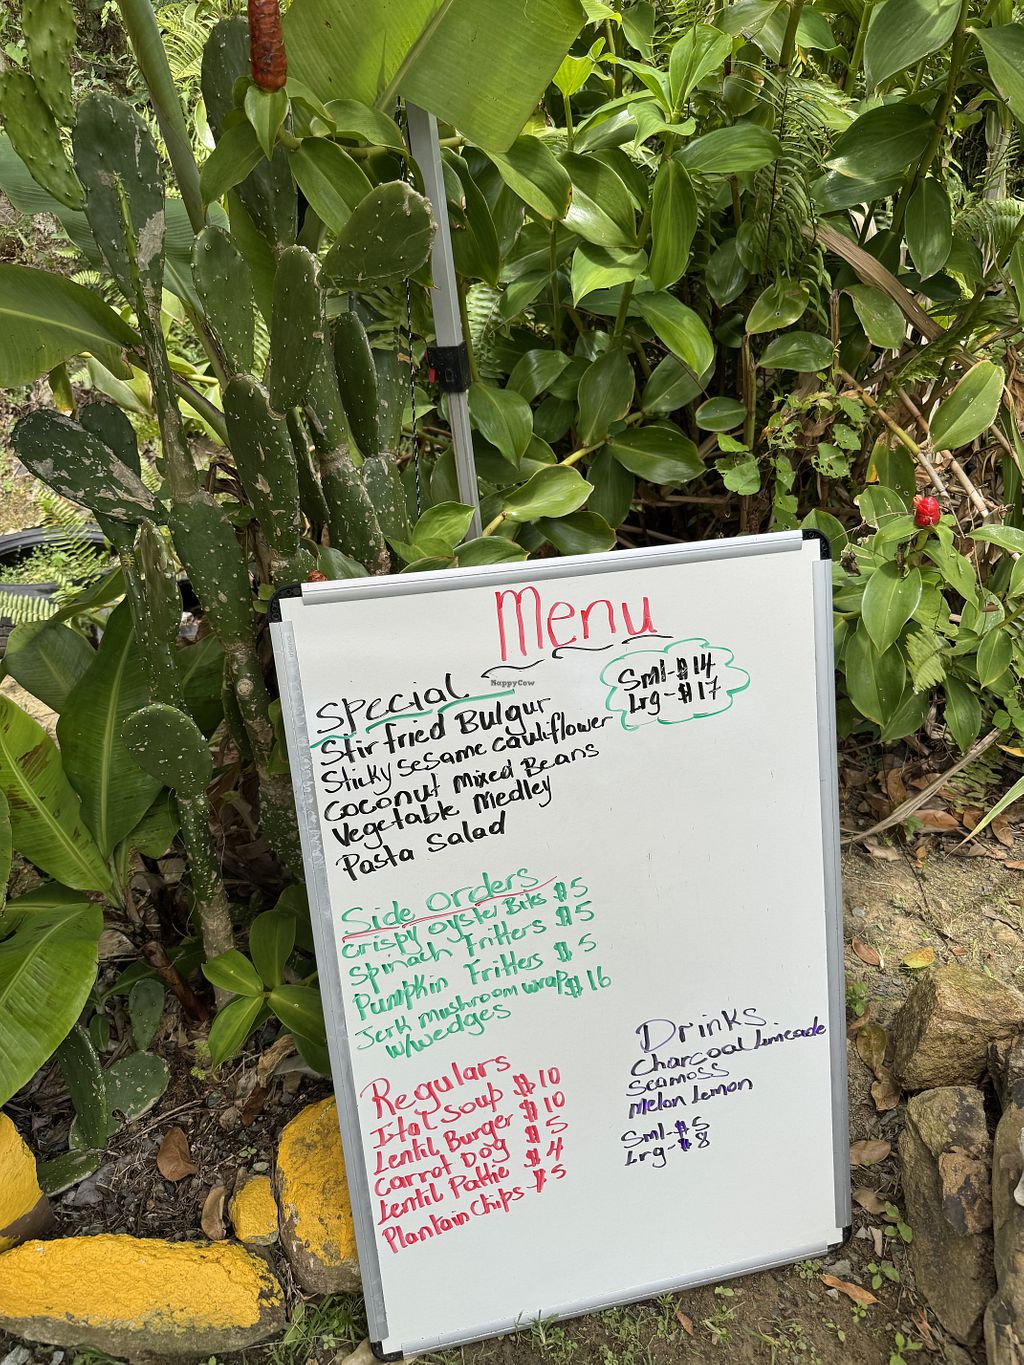 Menu
HappyCow
Special
Sml-$14
Lrg-$17
Stir fried Bulgur
Sticky sesame cauliflower
Coconut Mixed Beans
Vegetable Medley
Pasta Salad
Side Orders
Crispy oyster Bites $5
Spinach Fritters $5
Pumpkin Fritters $5
Jerk mushroom wrap $16
w/wedges
Regulars
Ital Soup $10
Lentil Burger $10
Carrot Dog $5
Lentil Pattie $4
Plantain Chips $5
Drinks
Charcoal Limeade
Seamoss
Melon Lemon
Sml-$5
Lrg-$8